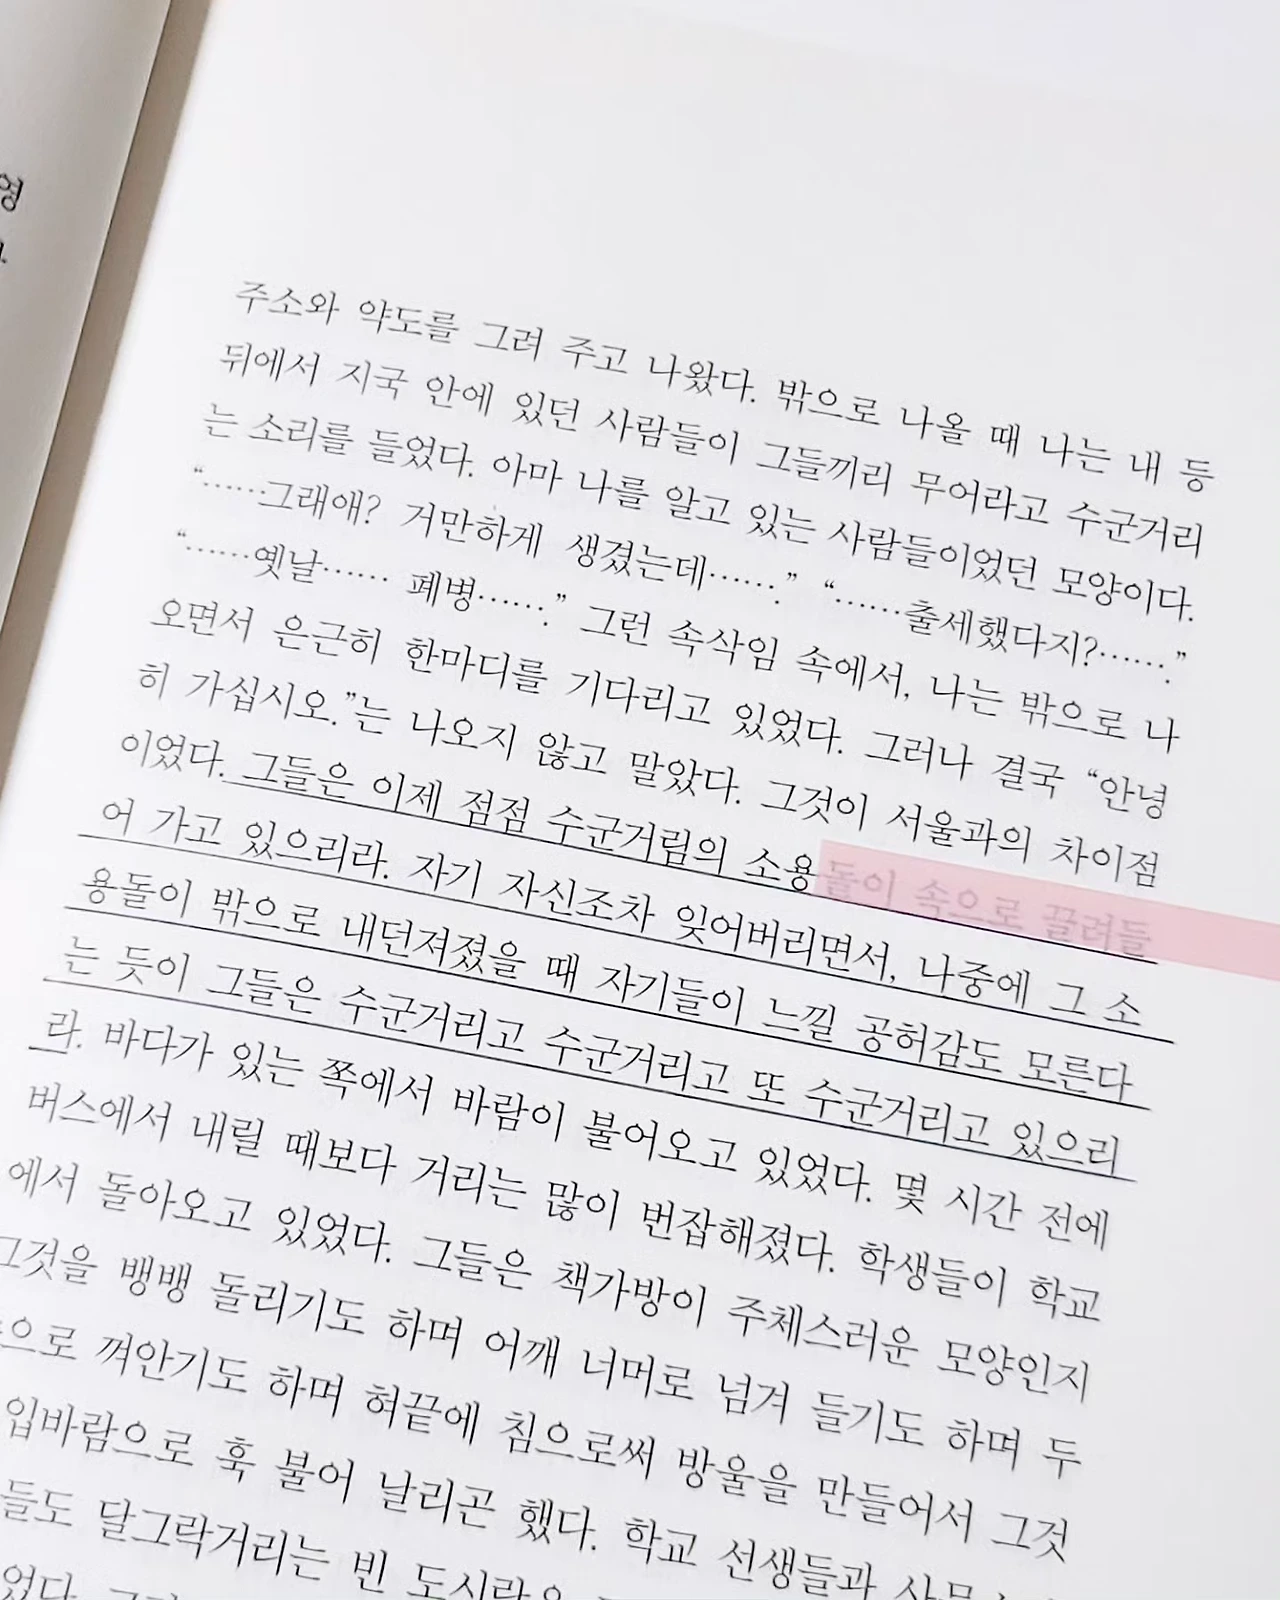 영
주소와 약도를 그려 주고 나왔다. 밖으로 나올 때 나는 내 등
뒤에서 지국 안에 있던 사람들이 그들끼리 무어라고 수군거리
는 소리를 들었다. 아마 나를 알고 있는 사람들이었던 모양이다.
“……그래애? 거만하게 생겼는데…….” “……출세했다지?…….”
“……옛날…… 폐병…….” 그런 속삭임 속에서, 나는 밖으로 나
오면서 은근히 한마디를 기다리고 있었다. 그러나 결국 “안녕
히 가십시오.”는 나오지 않고 말았다. 그것이 서울과의 차이점
이었다. 그들은 이제 점점 수군거림의 소용돌이 속으로 끌려들
어 가고 있으리라. 자기 자신조차 잊어버리면서, 나중에 그 소
용돌이 밖으로 내던져졌을 때 자기들이 느낄 공허감도 모른다
는 듯이 그들은 수군거리고 수군거리고 또 수군거리고 있으리
라. 바다가 있는 쪽에서 바람이 불어오고 있었다. 몇 시간 전에
버스에서 내릴 때보다 거리는 많이 번잡해졌다. 학생들이 학교
에서 돌아오고 있었다. 그들은 책가방이 주체스러운 모양인지
그것을 뱅뱅 돌리기도 하며 어깨 너머로 넘겨 들기도 하며 두
으로 껴안기도 하며 혀끝에 침으로써 방울을 만들어서 그것
입바람으로 훅 불어 날리곤 했다. 학교 선생들과
들도 달그락거리는 빈